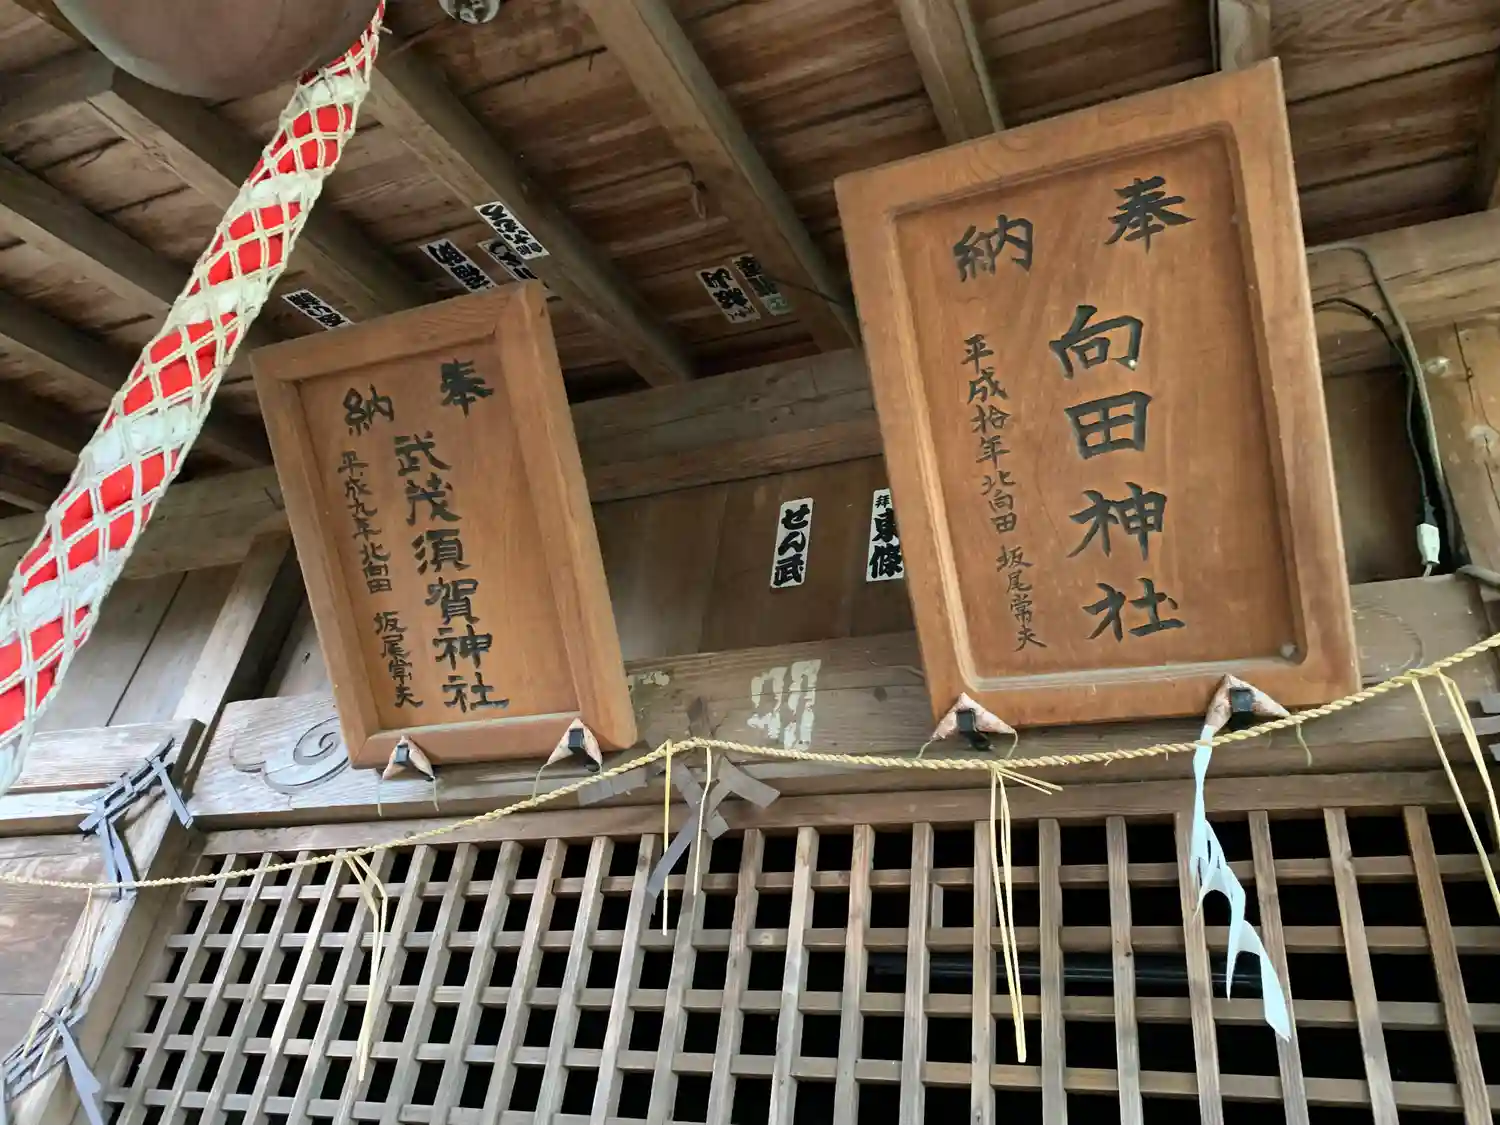 奉納
向田神社
平成拾年北向田 坂尾常夫
奉納
武茂須賀神社
平成九年北向田 坂尾常夫
せん武
拝 東條